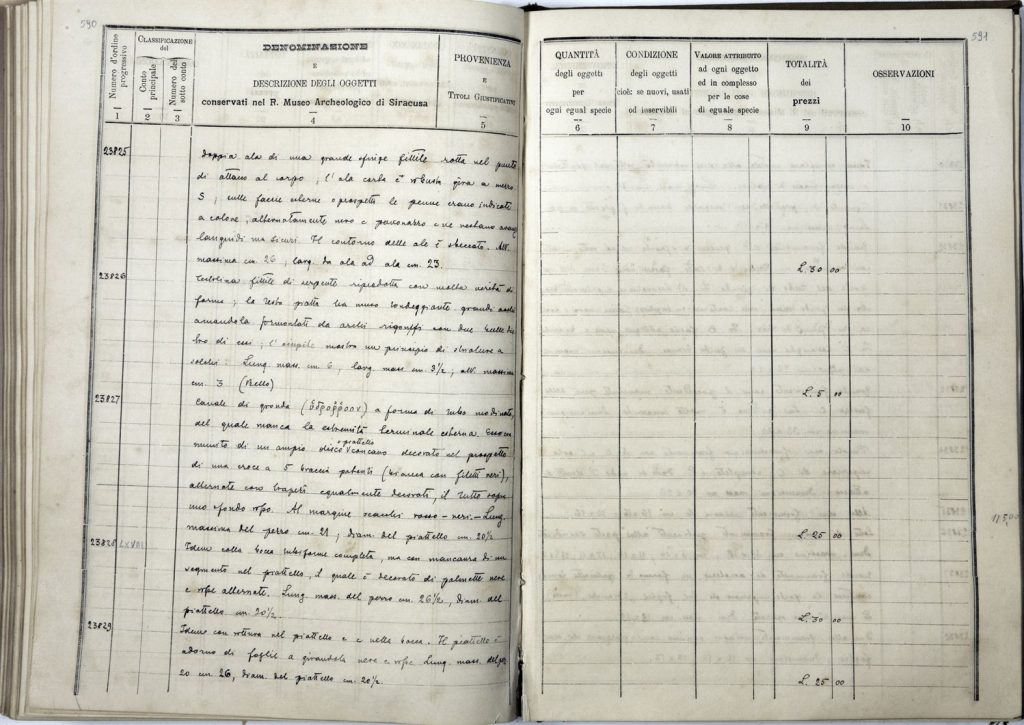 590
Numero d'ordine progressivo
CLASSIFICAZIONE del
Conto principale
Numero del sotto conto
DENOMINAZIONE
E
DESCRIZIONE DEGLI OGGETTI
conservati nel R. Museo Archeologico di Siracusa
PROVENIENZA
E
TITOLI GIUSTIFICATIVI
1 2 3 4 5
23825
Doppia ala di una grande sfinge fittile rotta nel punto
di attacco al corpo; l'ala curva è robusta gira a mezzo
S; sulle faccie esterne o prospetti le penne erano indicate
a colore, alternatamente nero e paonazzo e ne restano avanzi
languidi ma sicuri. Il contorno delle ale è sbeccato. Alt.
massima cm. 26, larg. da ala ad ala cm. 23.
23826
Testolina fittile di serpente riprodotta con molta verità di
forme; la testa piatta ha muso tondeggiante grandi occhi
a mandola sormontati da archi rigonfi con due bulle
di essi; mostra un principio di striature a
solchi. Lung. mass. cm. 6, larg. mass. cm 3½; alt. massima
cm. 3 (Bello)
23827
Canale di gronda () a forma di tubo modinato
del quale manca la estremità terminale esterna. Esso
munito di un ampio disco o piattello concavo decorato nel prospetto
di una croce a 5 braccia patenti (bianca con filetti neri),
alternate con trapezi egualmente decorati, il tutto sopra
uno sfondo rosso. Al margine scacchi rosso-neri. Lung.
massima del pezzo cm. 21, diam. del piattello cm. 20½
23828 LXVIII
Idem colla bocca tubiforme completa, ma con mancanza di un
segmento nel piattello, il quale è decorato di palmette nere
e rosse alternate. Lung. mass. del pezzo cm. 26½, diam. del
piattello cm. 20½.
23829
Idem con rottura nel piattello e nella bocca. Il piattello è
adorno di foglie a girandola nere e rosse Lung. mass. del pez
zo cm. 26, diam. del piattello cm. 20½.
591
QUANTITÀ
degli oggetti
per
ogni egual specie
CONDIZIONE
degli oggetti
cioè: se nuovi, usati
od inservibili
VALORE ATTRIBUITO
ad ogni oggetto
ed in complesso
per le cose
di eguale specie
TOTALITÀ
dei
prezzi
OSSERVAZIONI
6 7 8 9 10
L. 30 00
L. 5 00
L. 25 00
115,00
L. 30 00
L. 25 00